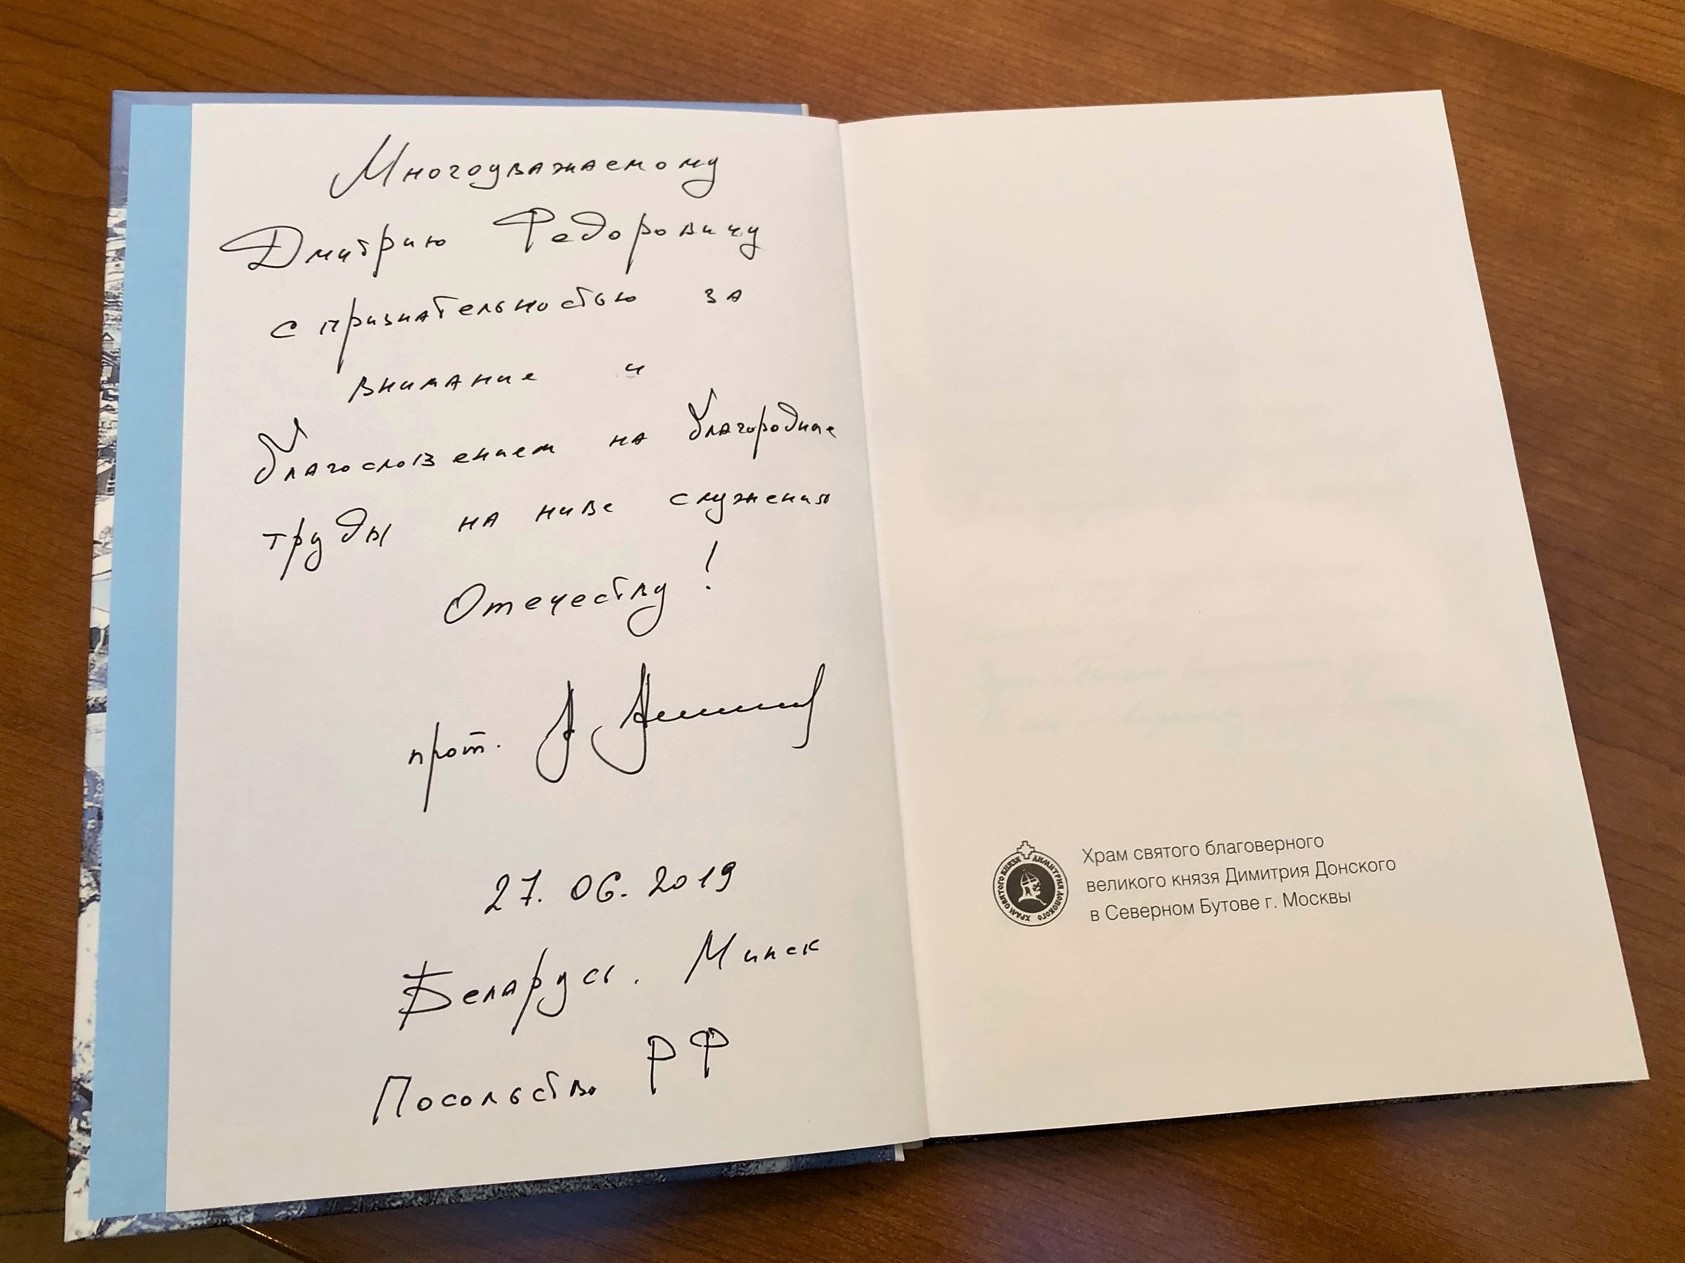 Многоуважаемому
Дмитрию Федоровичу
с признательностью за
внимание и
благословением на благородные
труды на ниве служения
Отечеству!
прот.
27. 06. 2019
Беларусь. Минск
Посольство РФ
Храм святого благоверного
великого князя Димитрия Донского
в Северном Бутове г. Москвы